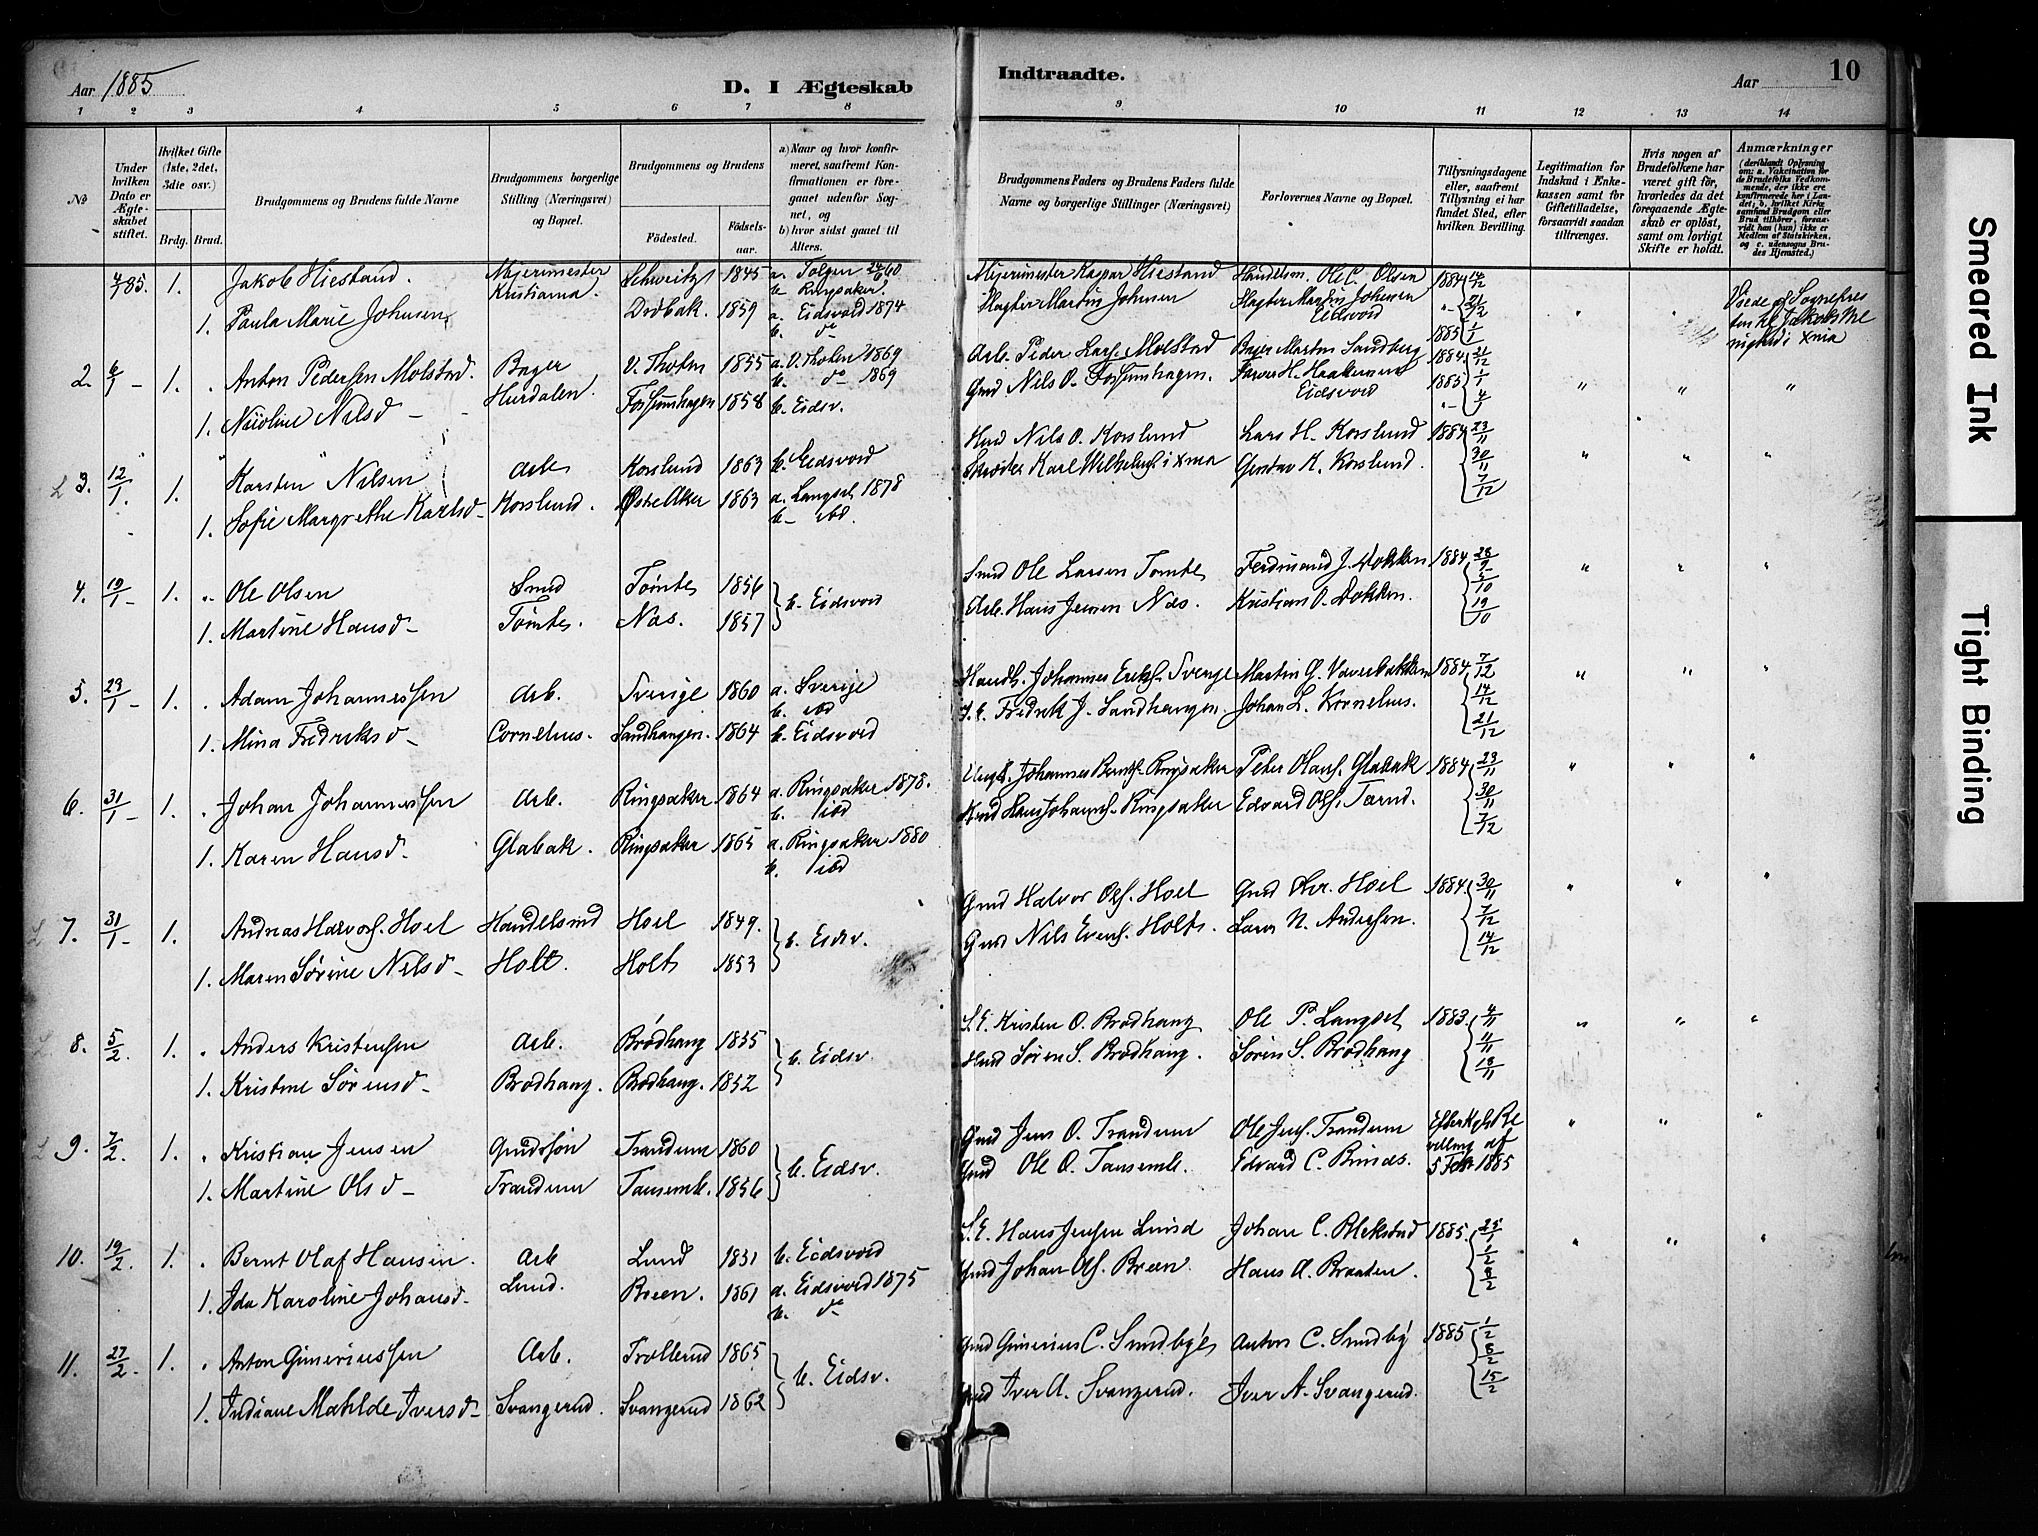 Aar 1885
D. I Ægteskab
Indtraadte.
Aar
10
1 2 3 4 5 6 7 8 9 10 11 12 13 14
No
Under hvilken Dato er Ægteskabet stiftet.
Hvilket Gifte (1ste, 2det, 3die osv.)
Brdg. Brud.
Brudgommens og Brudens fulde Navne
Brudgommens borgerlige Stilling (Næringsvei) og Bopæl.
Brudgommens og Brudens
Fødested. Fødsels-aar.
a) Naar og hvor konfirmeret, saafremt Konfirmationen er foregaaet udenfor Sognet, og
b) hvor sidst gaaet til Alters.
Brudgommens Faders og Brudens Faders fulde Navne og borgerlige Stillinger (Næringsvei)
Forlovernes Navne og Bopæl.
Tillysningsdagene eller, saafremt Tillysning ei har fundet Sted, efter hvilken Bevilling.
Legitimation for Indskud i Enkekassen samt for Giftetilladelse, forsaavidt saadan tiltrænges.
Hvis nogen af Brudefolkene har været gift før, hvorledes da det foregaaende Ægteskab er opløst, samt om lovligt Skifte er holdt.
Anmærkninger
(deriblandt Oplysning om: a. Vakcination for de Brudefolks Vedkommende, der ikke ere konfirmerede her i Landet; b. hvilket Kirkesamfund Brudgom eller Brud tilhører, forsaavidt han (hun) ikke er Medlem af Statskirken, og c. udensogns Brudes Hjemsted.)
4/1 85. 1. Jakob Hiestand. Mejerimester Schweitz 1845 Mejerimester Kaspar Hiestand Handelsm. Ole C. Olsen 1884 14/12
1. Paula Marie Johnsen Kristiania. Drøbak. 1859 a. Eidsvold 1874 Slagter Martin Johnsen Slagter Martin Johnsen 21/12
b. Ringsaker. Eidsvold 1885 1/1
2. 6/1 1. Anton Pedersen Molstad. Bager V. Thoten 1855 a. V. Thoten 1869 Arb. Peder Lars. Molstad Bager Martin Sandberg 1884 21/12
1. Nicoline Nilsd Hurdalen. Fossumhagen 1858 b. Eidsv. Gmd Nils O. Fossumhagen. Eidsvold 1885 1/1
3. 12/1 1. Karsten Nilsen Arb. Korslund 1863 b. Eidsvold Hmd Nils O. Korslund Lars H. Korslund 1884 23/11
1. Sofie Margrethe Karlsd Korslund. Østre Aker 1863 a. Langset 1878 Karl Wilhelms. i Xnia Gustav K. Korslund. 30/11
b. ibd. 7/12
4. 19/1 1. Ole Olsen Smed Tømte 1856 b. Eidsvold Smed Ole Larsen Tømte Ferdinand J. Dokken 1884 28/9
1. Martine Hansd Tømte. Næs. 1857 Arb. Hans Jensen Næs. Kristian O. Dokken. 5/10
19/10
5. 29/1 1. Adam Johannessen Arb. Sverige 1860 a. Sverige Johannes Eriks. Sverige 1884 7/12
b. ibd 14/12
1. Mina Fredriksd Cornelius. Sandhaugen. 1864 b. Eidsvold Fredrik J. Sandhaugen. Johan L. Kornelius. 21/12
6. 31/1 1. Johan Johannessen Arb. Ringsaker 1864 a. Ringsaker 1878. Johannes Bernts. Ringsaker Peter Olaus. Glabak 1884 23/11
b. ibd 30/11
1. Karen Hansd. Glabak. Ringsaker 1865 a. Ringsaker 1880 Hans Johannes. Ringsaker Edvard Ols. 7/12
b. ibd
7. 31/1 1. Andreas Halvors. Hoel Handelsmd Hoel 1849. b. Eidsv. Gmd Halvor Ols. Hoel Gmd Chr. Hoel 1884 30/11
1. Maren Sørine Nilsd Holt. Holt 1853 Gmd Nils Evens. Holt. Lars N. Andersen. 7/12
14/12
8. 5/2 1. Anders Kristensen Arb. Brødhaug 1855 b. Eidsv. S.E. Kristen O. Brødhaug Ole P. Langset 1883. 4/11
1. Kristine Sørensd Brødhaug. Brødhaug. 1852 Hmd Søren S. Brødhaug. Søren S. Brødhaug 11/11
18/11
9. 7/2 1. Kristian Jensen Gmdssøn Trandum 1860 b. Eidsv. Gmd Jens O. Trandum Ole Jens. Trandum Efter Kgl. Be
villing af
1. Martine Olsd Trandum Tansemb. 1856 Gmd Ole O. Tansemb. Edvard C. Bindes. 5 Febr 1885
10. 19/2 1. Bernt Olaf Hansen. Arb Lund 1851 b. Eidsvold S.E. Hans Jensen Lund Johan C. Blekstad 1885. 25/1
1. Ida Karoline Johansd. Lund. Breen. 1861 a. Eidsvold 1875 Gmd Johan Ols. Breen. Hans A. Braaten. 1/2
b. do 8/2
11. 27/2 1. Anton Gunerinssen Arb. Trollerud 1865 b. Eidsv. Gmd Gunerius C. Sundbye Anton C. Sundby 1885 1/2
8/2
1. Indiane Mathilde Iversd Svangerud. Svangerud 1862 Gmd Iver A. Svangerud. Iver A. Svangerud. 15/2
Smeared Ink
Tight Binding